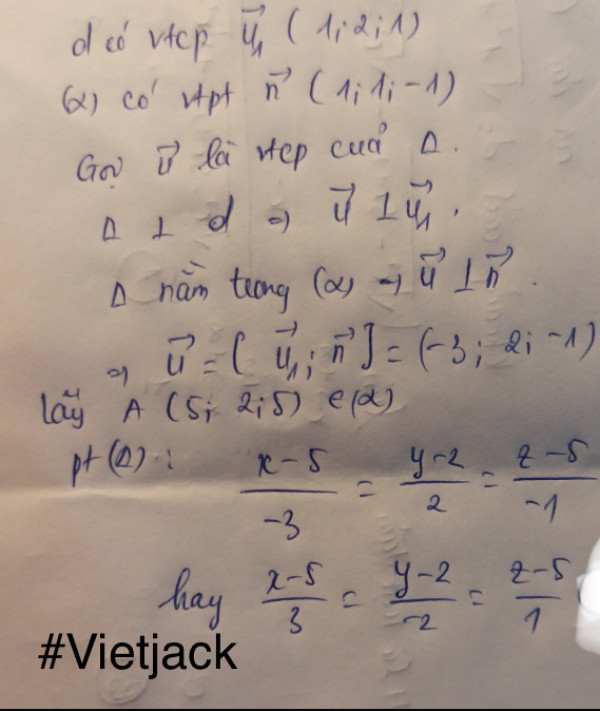 d có vtcp u⃗₁ (1; 2; 1)
(α) có vtpt n⃗ (1; 1; -1)
Gọi u⃗ là vtcp cuả Δ.
Δ ⊥ d ⇒ u⃗ ⊥ u⃗₁.
Δ nằm trong (α) ⇒ u⃗ ⊥ n⃗.
⇒ u⃗ = [u⃗₁; n⃗] = (-3; 2; -1)
lấy A (5; 2; 5) ∈ (α)
pt (Δ): (x-5)/-3 = (y-2)/2 = (z-5)/-1
hay (x-5)/3 = (y-2)/-2 = (z-5)/1
#Vietjack